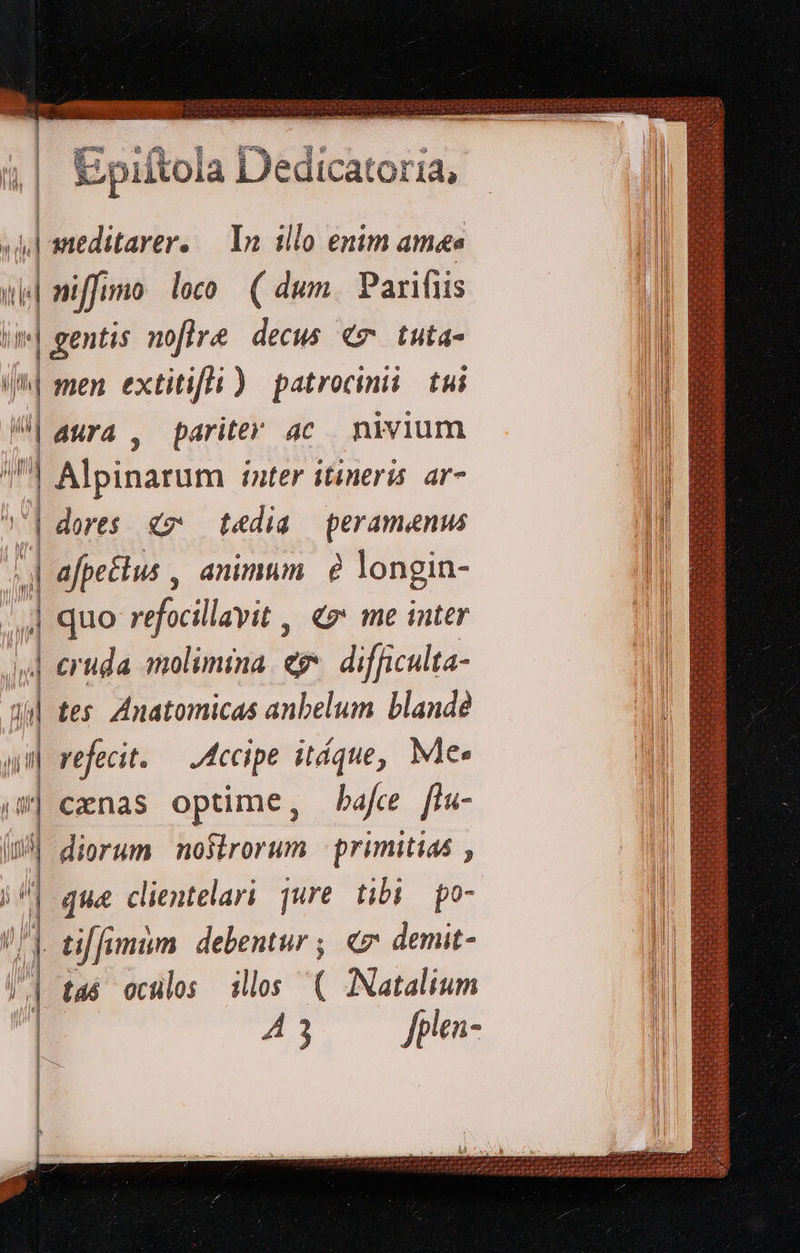 Epiſtola Dedicatoria,
meditarer. In illo enim amæ-
niſſimo loco (dum Pariſiis
gentis noſtræ decus & tuta-
men extitiſti) patrocinii tui
aura, pariter ac nivium
Alpinarum inter itineris ar-
dores & tædia peramænus
aſpectus, animum è longin-
quo refocillavit, & me inter
cruda molimina & difficulta-
tes Anatomicas anhelum blandè
refecit. Accipe itáque, Me-
cænas optime, haſce ſtu-
diorum noſtrorum primitias,
quæ clientelari jure tibi po-
tiſſimùm debentur; & demit-
tas oculos illos (Natalium
A 3 ſplen-